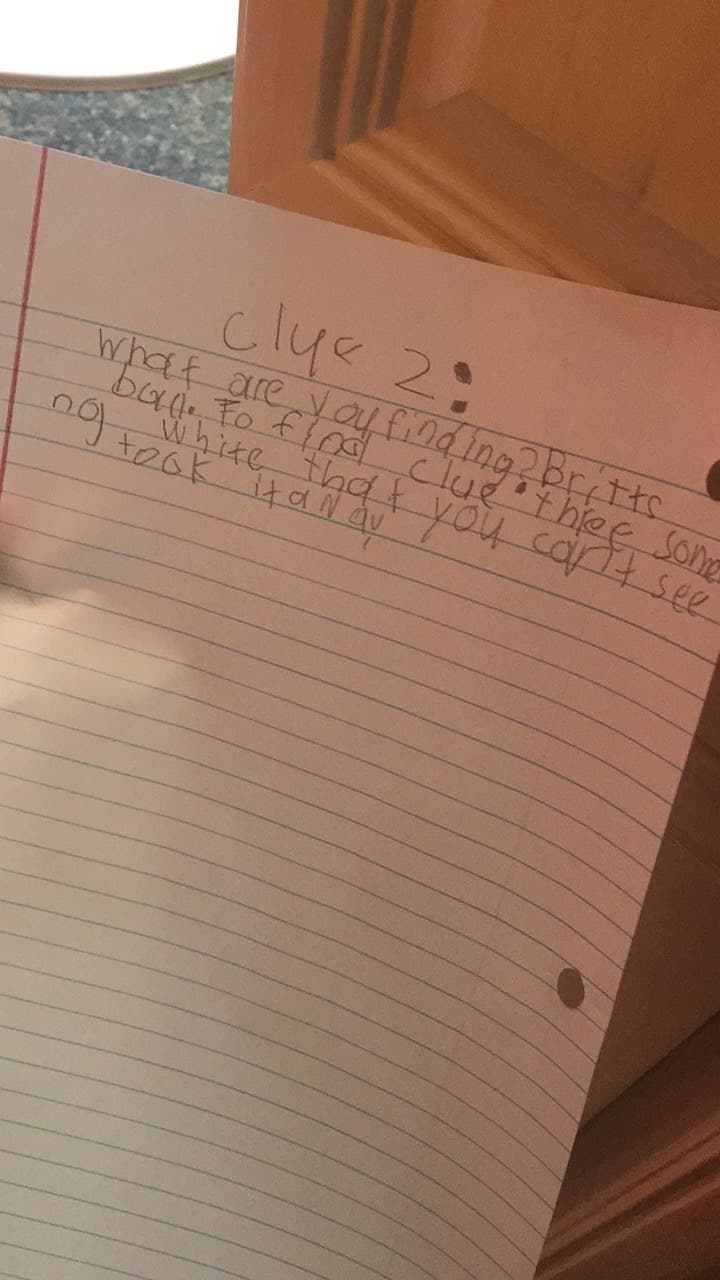 Clue 2:
What are you finding? Britts
ball. To find clue three some
ng white that you can't see
took it away